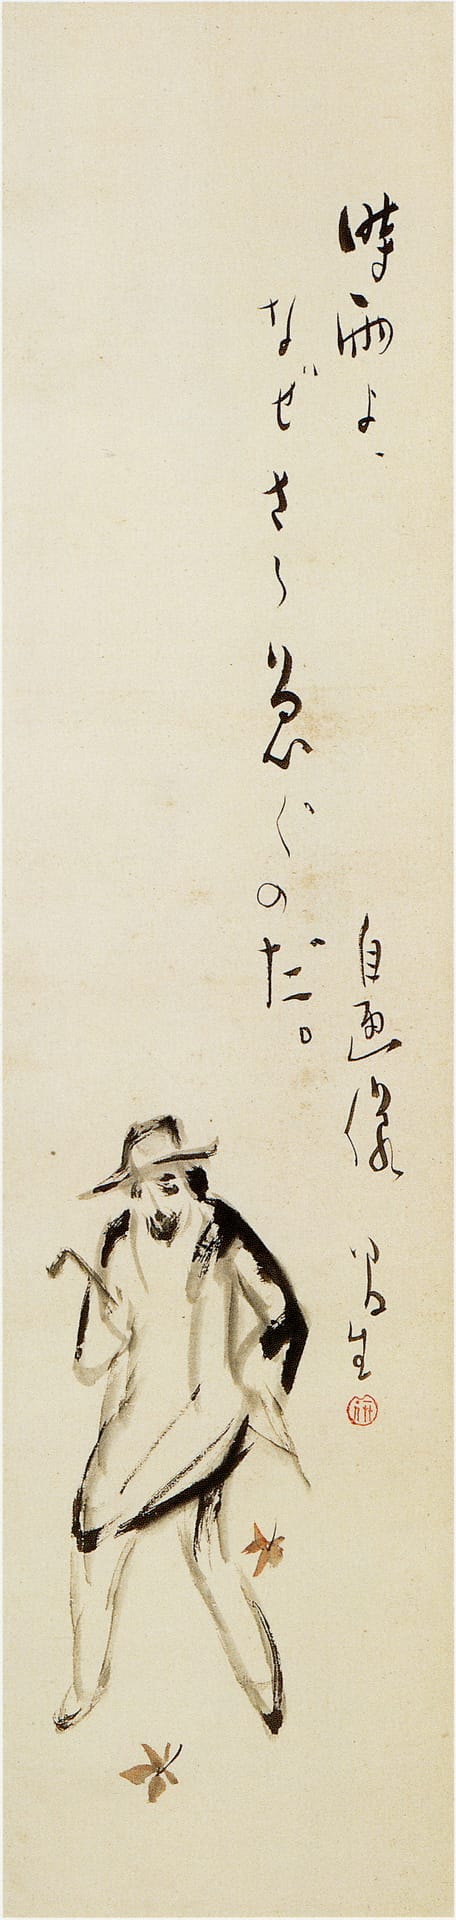 時雨よ、
なぜさう急ぐのだ。
自画像